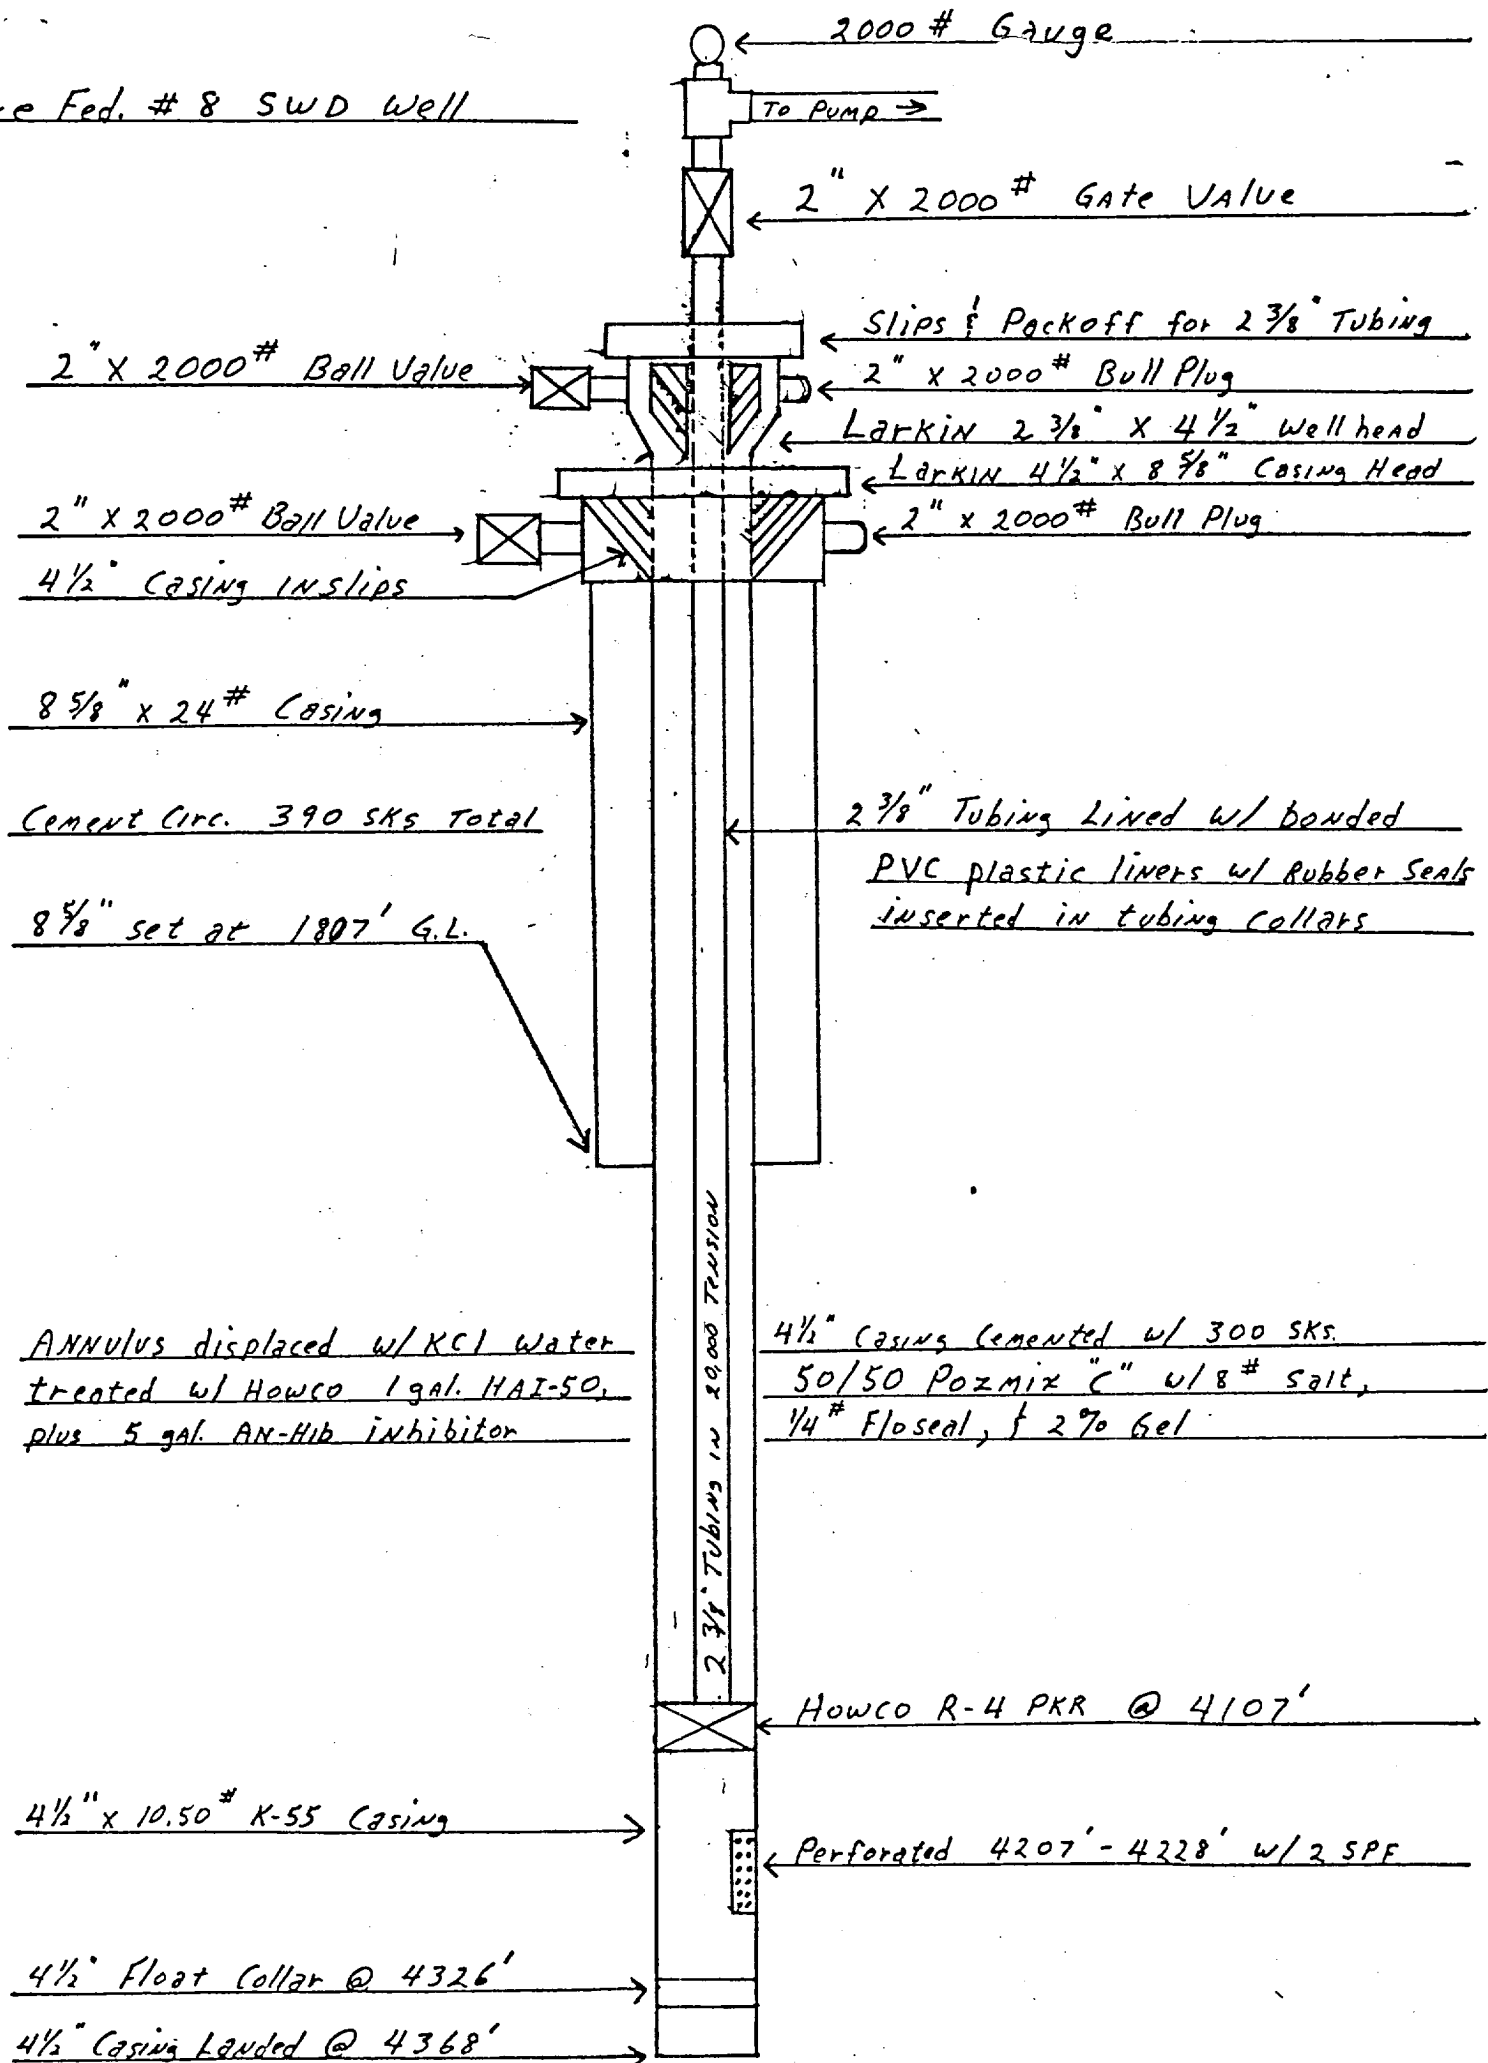 2000 # Gauge
e Fed. # 8 SWD Well
To Pump →
2" X 2000 # Gate Valve
Slips & Packoff for 2 3/8" Tubing
2" X 2000 # Ball Valve
2" x 2000 # Bull Plug
Larkin 2 3/8" X 4 1/2" Wellhead
Larkin 4 1/2" x 8 5/8" Casing Head
2" X 2000 # Ball Valve
2" x 2000 # Bull Plug
4 1/2" Casing in slips
8 5/8" x 24 # Casing
Cement Circ. 390 SKs Total
2 3/8" Tubing Lined w/ bonded
PVC plastic liners w/ Rubber Seals
inserted in tubing collars
8 5/8" set at 1807' G.L.
2 3/8" Tubing in 20,000 Tension
Annulus displaced w/ KCl Water
treated w/ Howco 1 gal. HAI-50,
plus 5 gal. AN-Hib inhibitor
4 1/2" Casing Cemented w/ 300 SKs.
50/50 Pozmix "C" w/ 8 # Salt,
1/4 # Floseal, & 2% Gel
Howco R-4 PKR @ 4107'
4 1/2" x 10.50 # K-55 Casing
Perforated 4207' - 4228' w/ 2 SPF
4 1/2" Float Collar @ 4326'
4 1/2" Casing Landed @ 4368'